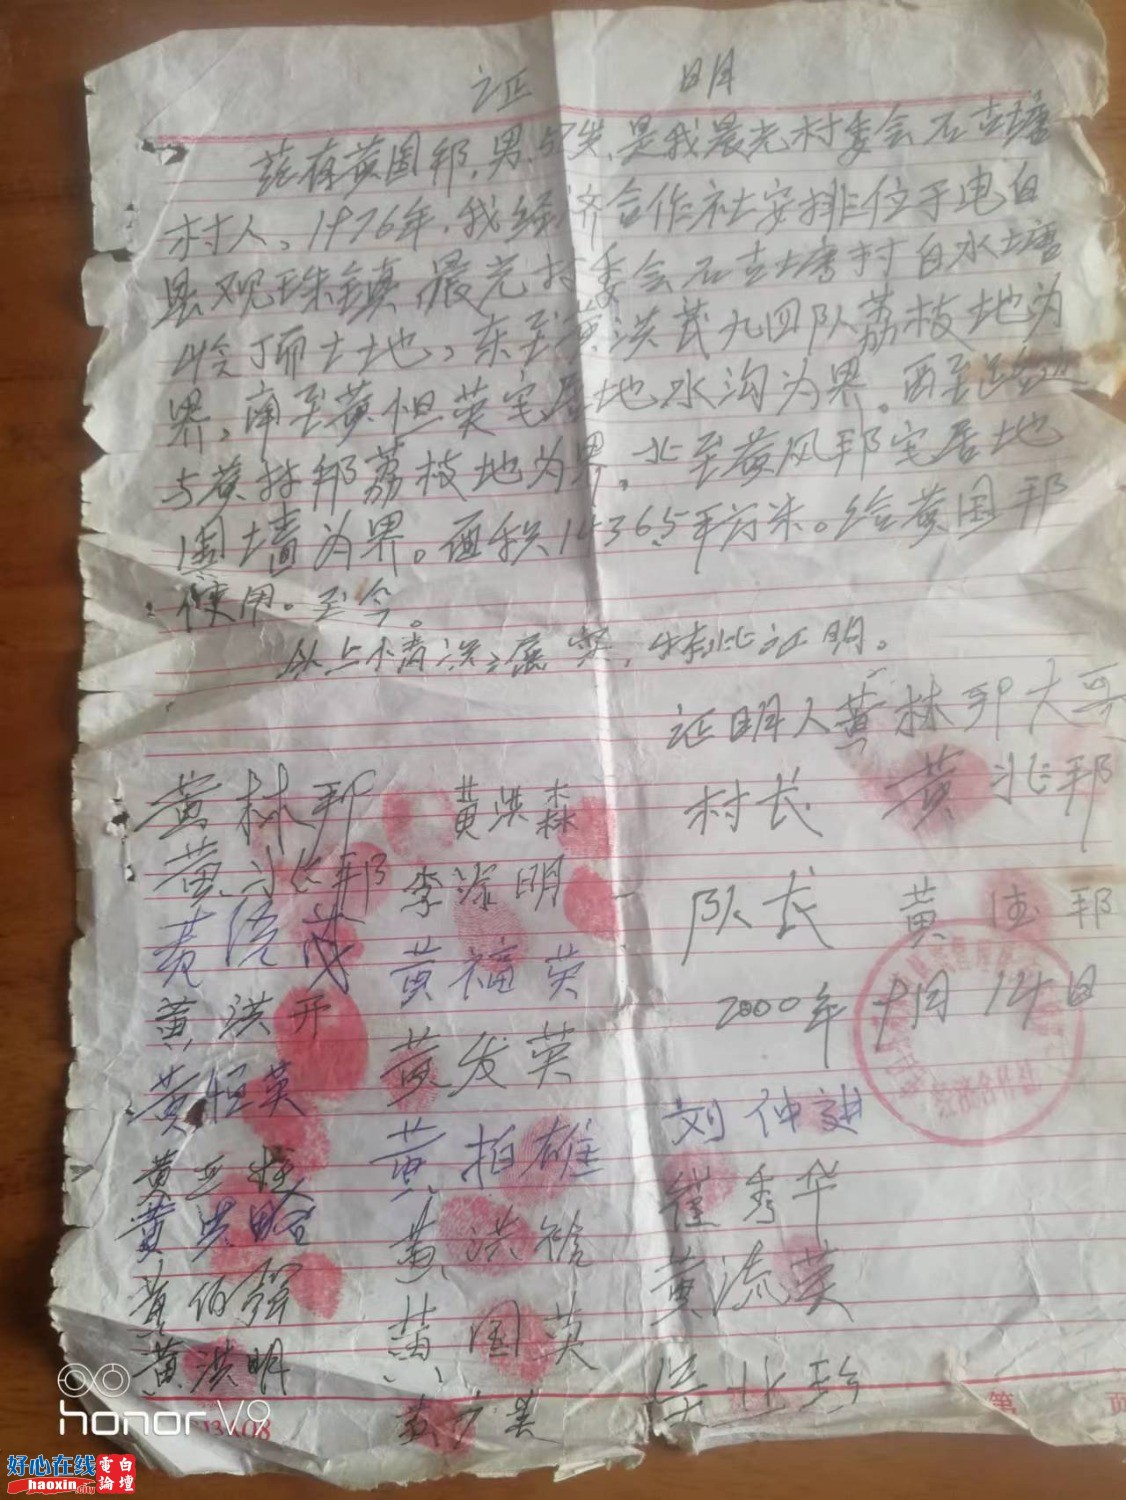 证 明
兹有黄国邦,男,岁,是我晨光村委会石古塘
村人,1976年,我经济合作社安排位于电白
县观珠镇晨光村委会石古塘村白水塘
岭顶土地,东至黄洪茂九四队荔枝地为
界,南至黄恒英宅居地水沟为界。西至路边
与黄林邦荔枝地为界,北至黄凤邦宅居地
围墙为界。面积14365平方米。给黄国邦
使用。至今。
以上情况属实,特此证明。
证明人黄林邦大哥
村长 黄兆邦
队长 黄 邦
2000年 月14日
经济合作社
黄林邦
黄 邦
黄 茂
黄洪开
黄恒英
黄
黄洪略
黄伯
黄洪明
黄洪森
李 明
黄福英
黄发英
黄柏雄
黄洪
黄国英
黄 英
刘仲进
崔秀华
黄流英
珍
第 页
honor V9
好心在线
haoxin.city
電白
論壇